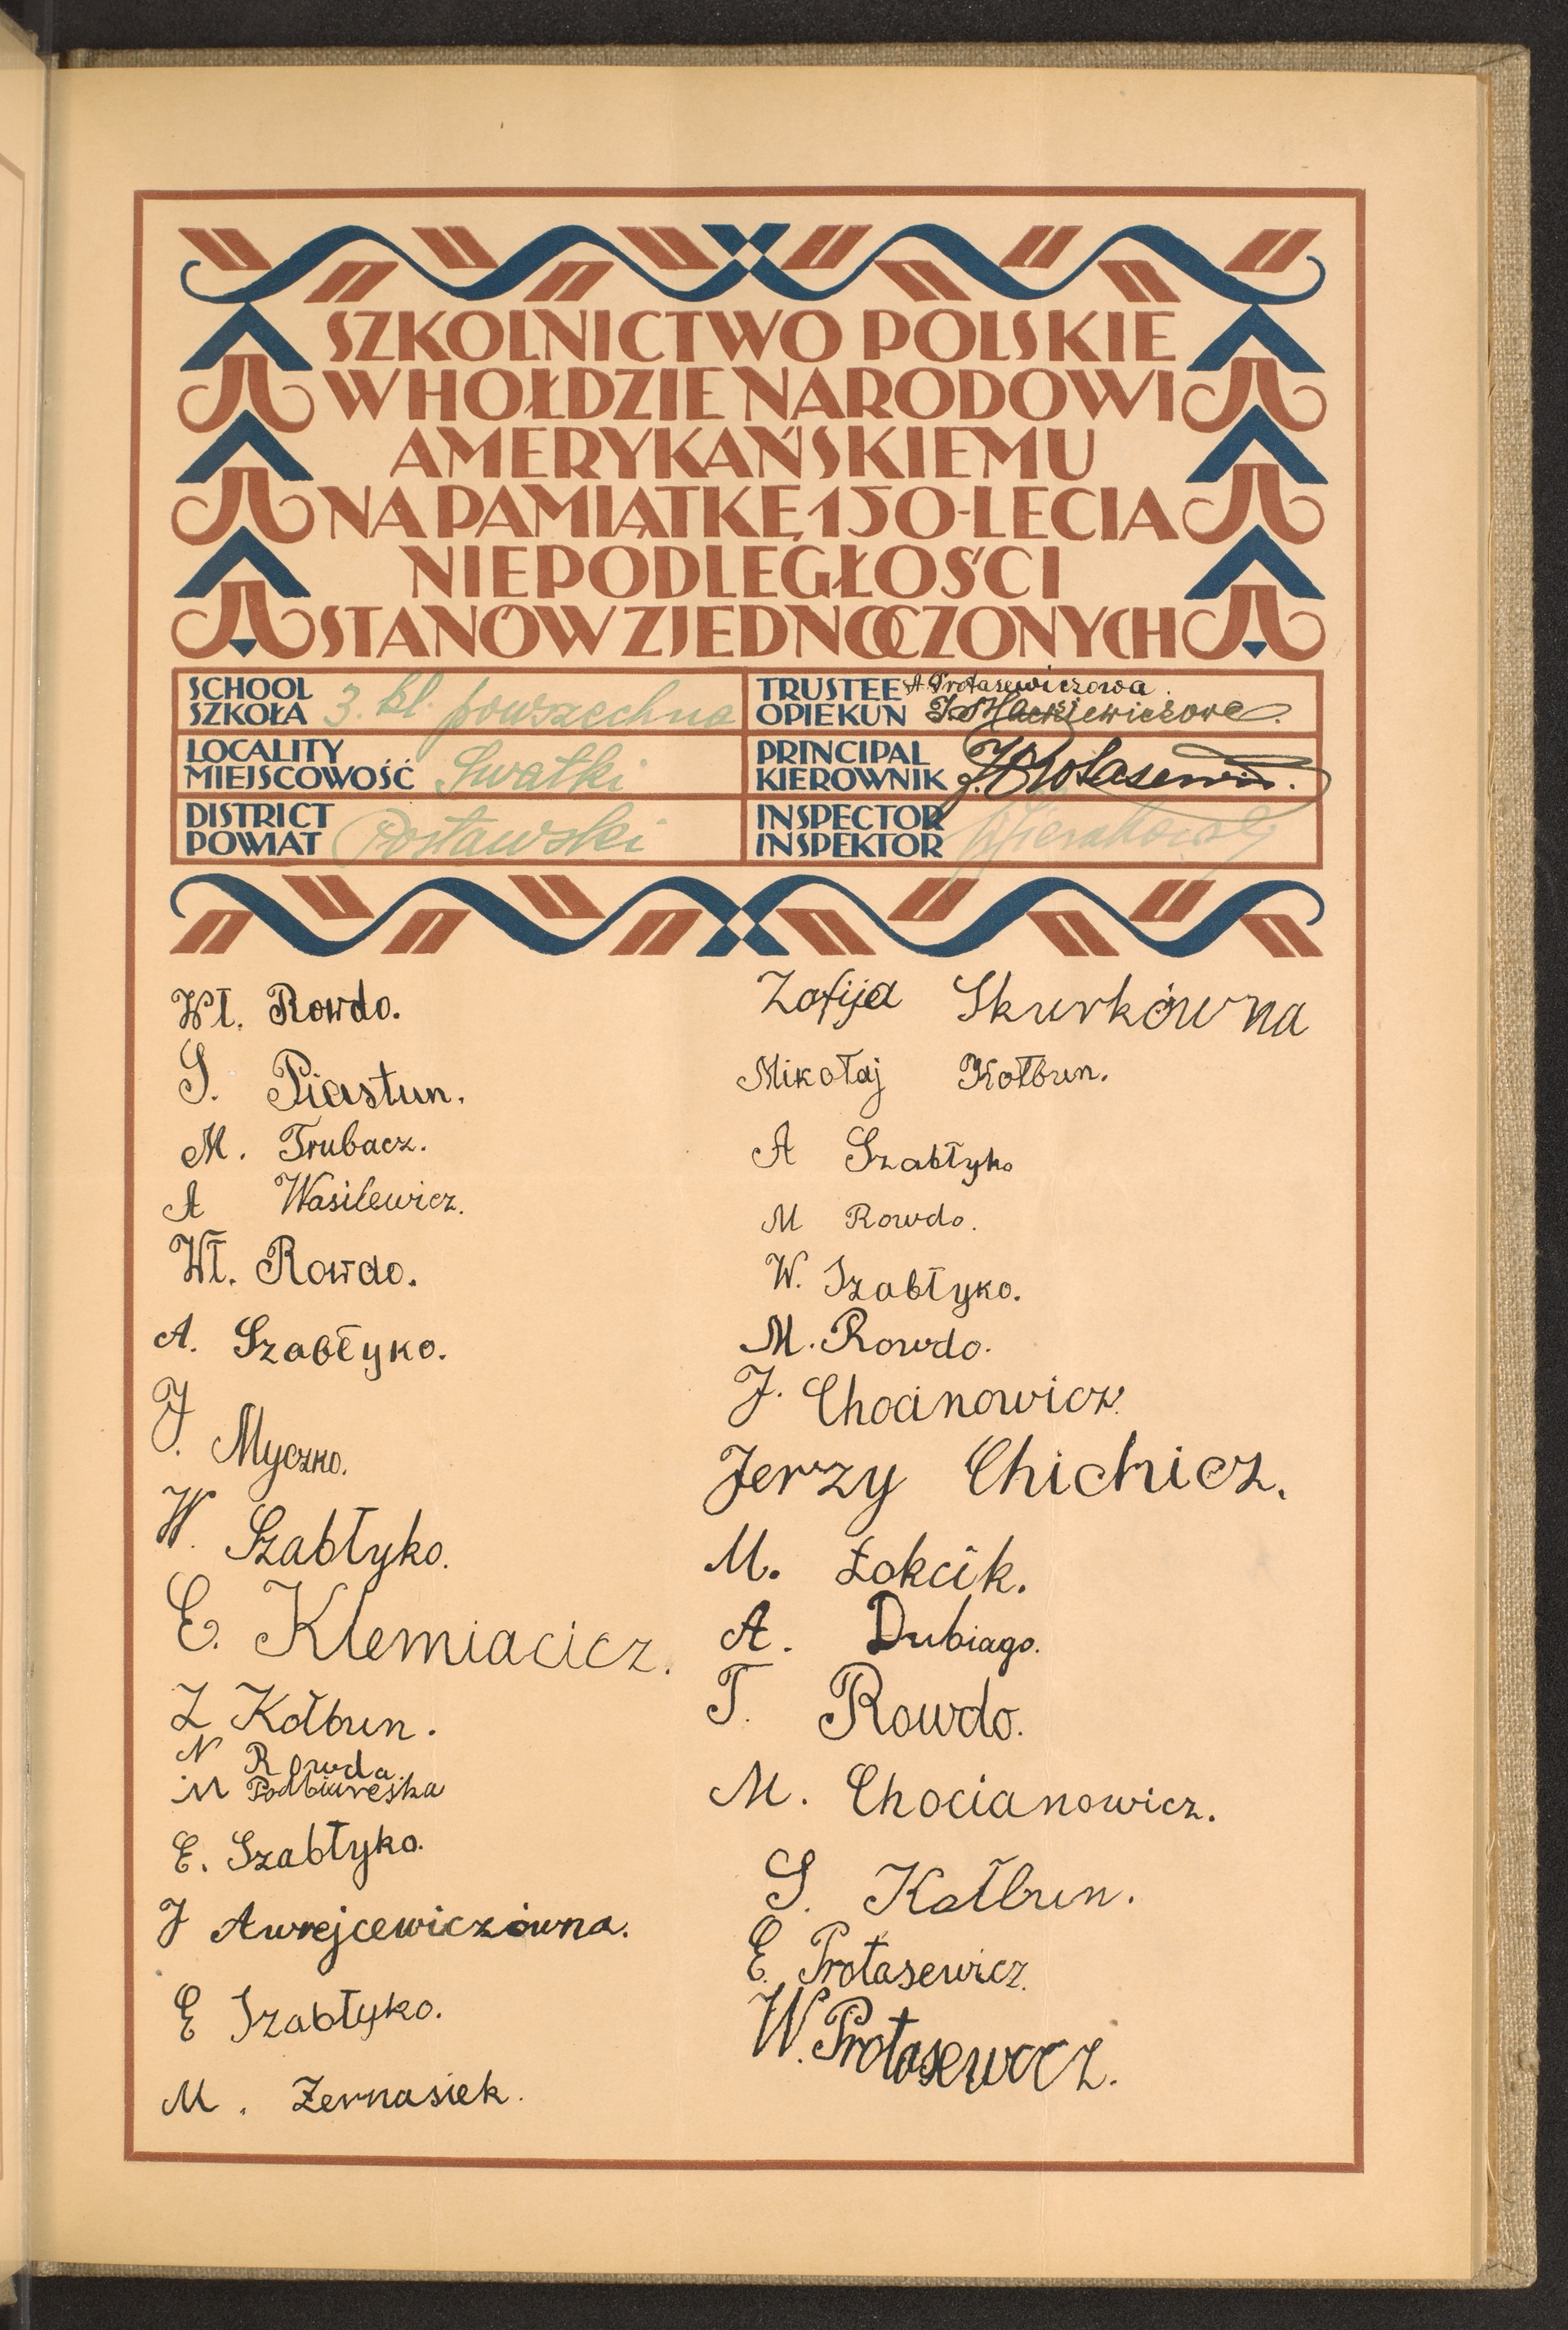 SZKOLNICTWO POLSKIE
W HOŁDZIE NARODOWI
AMERYKAŃSKIEMU
NA PAMIĄTKĘ 150-LECIA
NIEPODLEGŁOŚCI
STANÓW ZJEDNOCZONYCH
SCHOOL
SZKOŁA 3. kl. powszechna
LOCALITY
MIEJSCOWOŚĆ Swatki
DISTRICT
POWIAT Postawski
TRUSTEE A. Protasewiczowa.
OPIEKUN J. Mackiewiczowa.
PRINCIPAL
KIEROWNIK J. Protasewicz.
INSPECTOR
INSPEKTOR
Wł. Rowdo.
S. Piastun.
M. Trubacz.
A Wasilewicz.
Wł. Rowdo.
A. Szabłyko.
J. Myczko.
W. Szabłyko.
E. Klemiacicz.
Z Kołbun.
N Rowda
M Podbiareska
E. Szabłyko.
J Awrejcewiczówna.
E Szabłyko.
M. Żernasiek.
Zofija Skurkówna
Mikołaj Kołbun.
A Szabłyko
M Rowdo.
W. Szabłyko.
M. Rowdo.
J. Chocianowicz.
Jerzy Chichicz.
M. Łokcik.
A. Dubiago.
T. Rowdo.
M. Chocianowicz.
S. Kołbun.
E. Protasewicz.
W. Protasewicz.